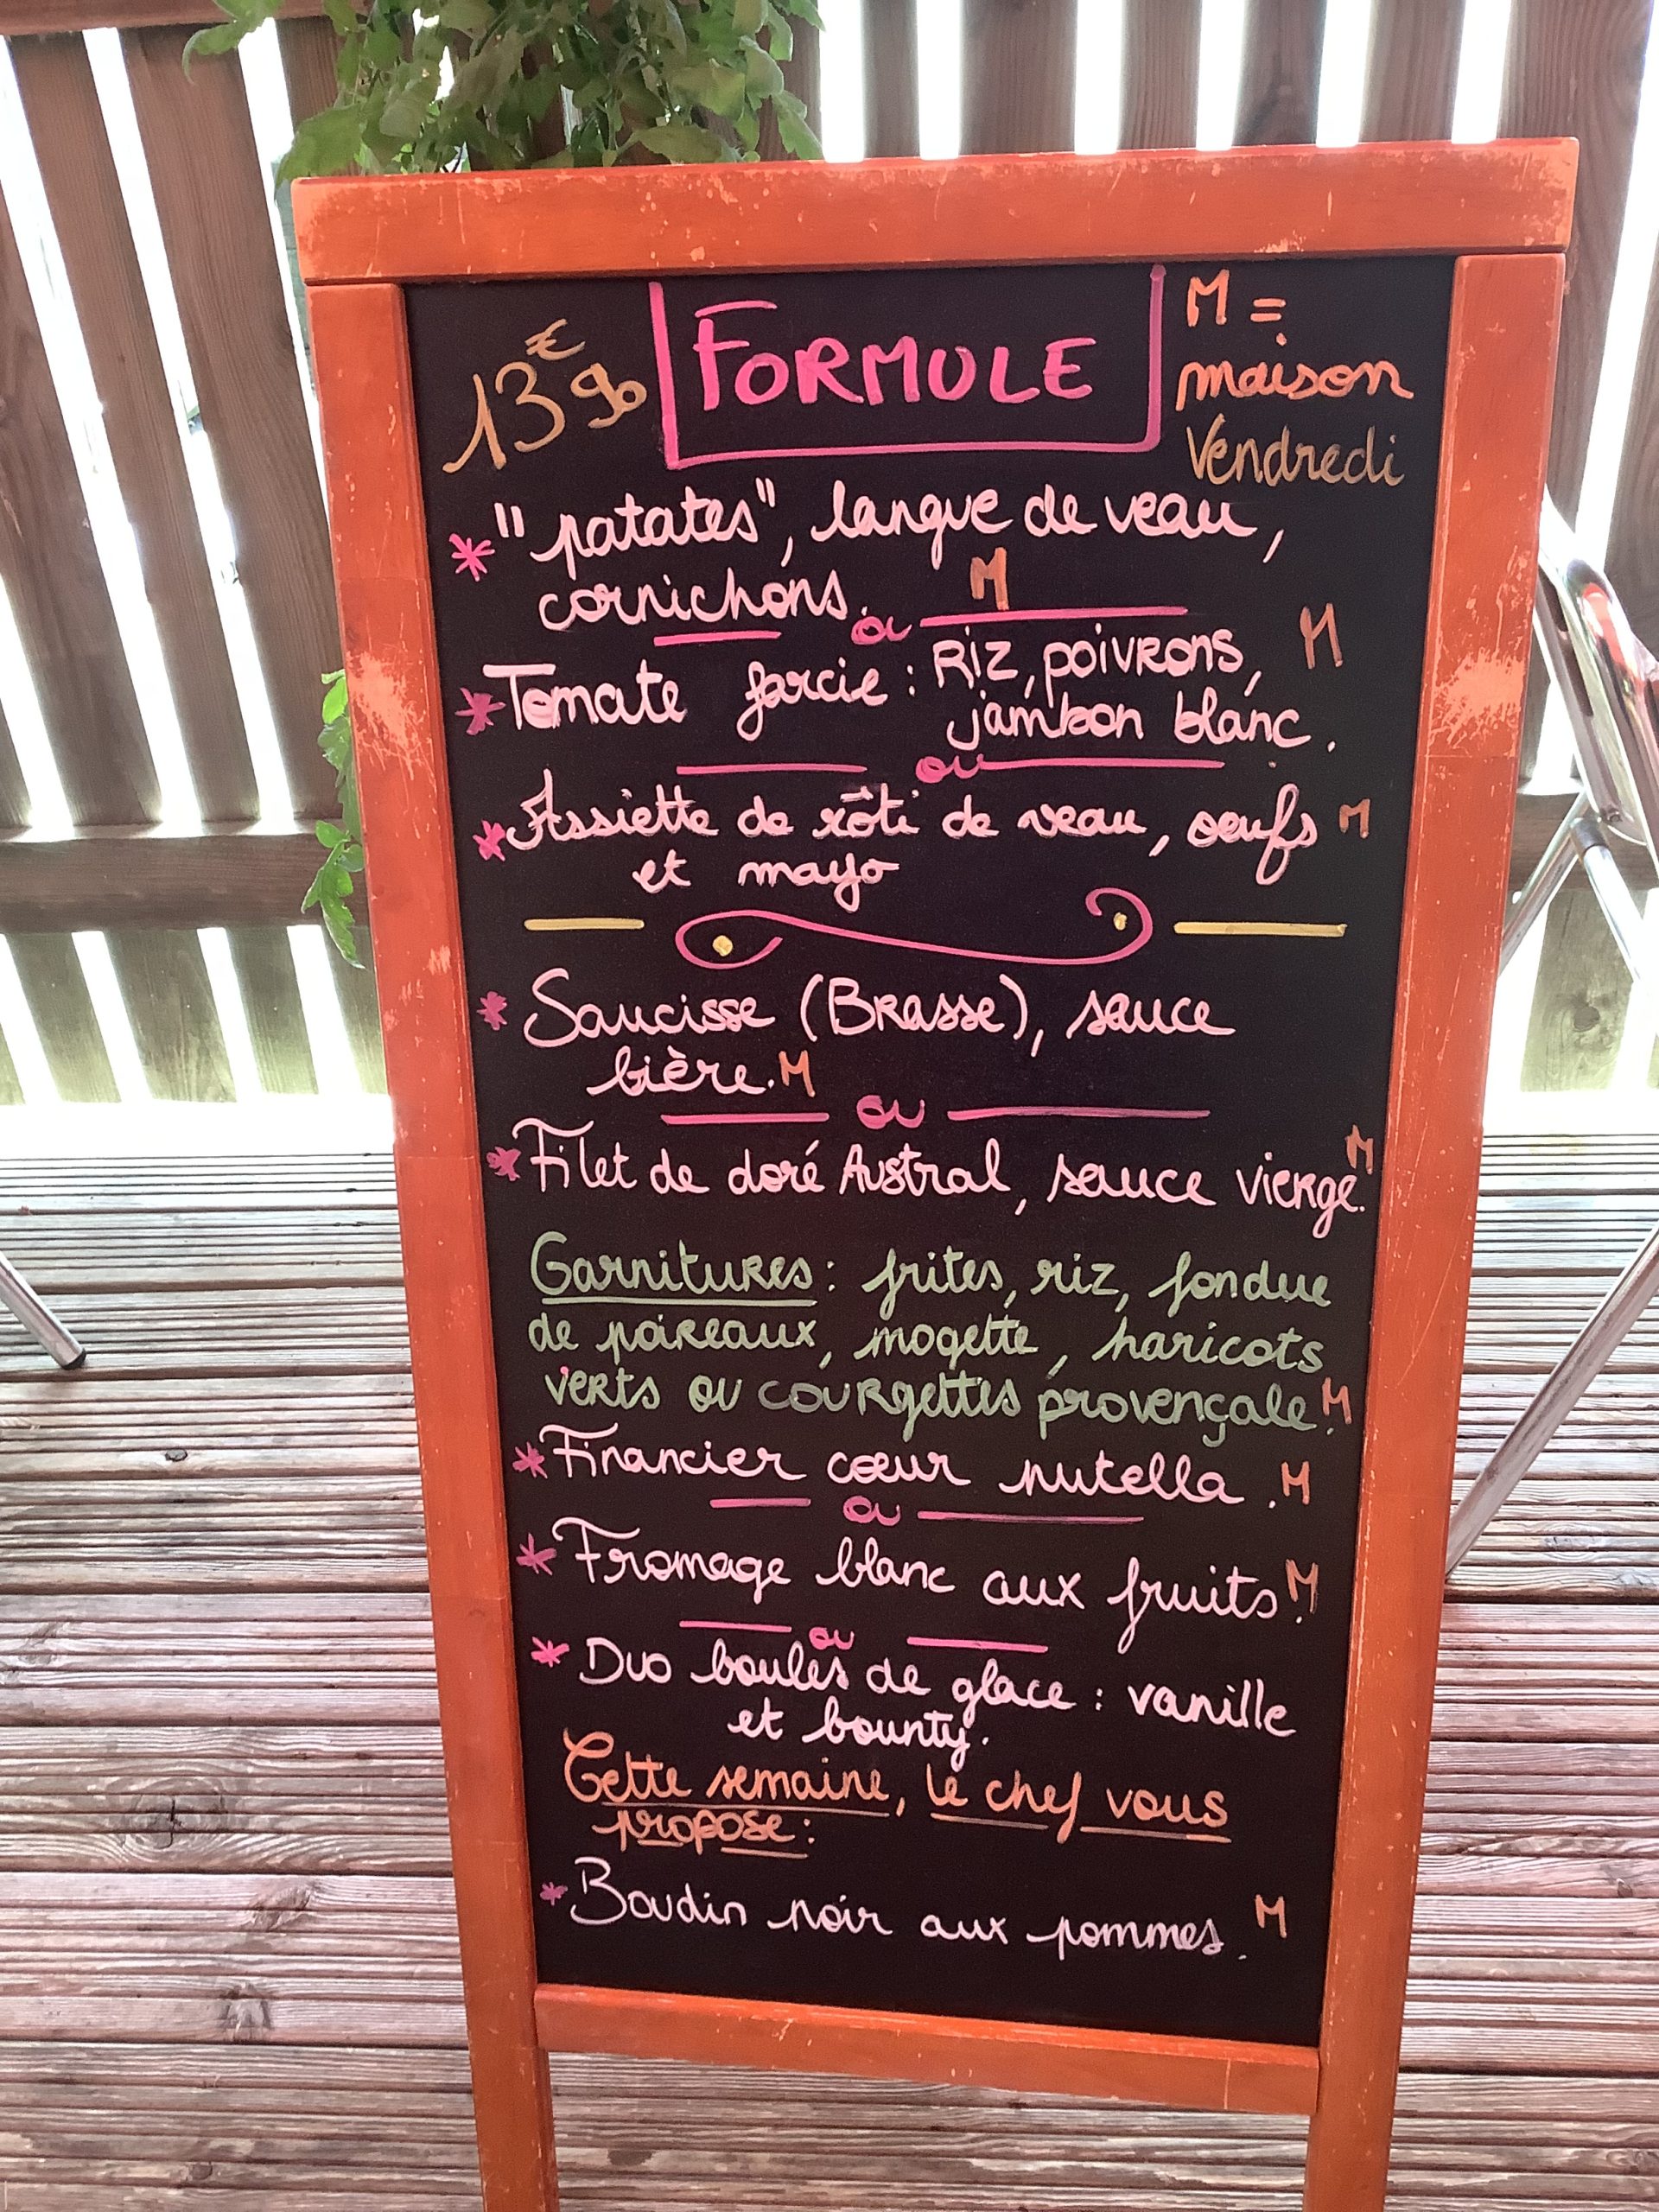 13€90 FORMULE M =
maison
Vendredi
* "patates", langue de veau,
cornichons. M
ou
* Tomate farcie : Riz, poivrons, M
jambon blanc.
ou
* Assiette de rôti de veau, oeufs M
et mayo
* Saucisse (Brasse), sauce
bière. M
ou
* Filet de doré Austral, sauce vierge. M
Garnitures : frites, riz, fondue
de poireaux, mogette, haricots
verts ou courgettes provençale. M
* Financier cœur nutella. M
ou
* Fromage blanc aux fruits. M
ou
* Duo boules de glace : vanille
et bounty.
Cette semaine, le chef vous
propose :
* Boudin noir aux pommes. M